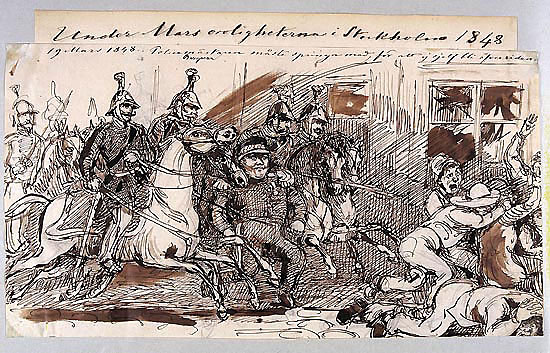 Under Mars oroligheterna i Stockholm 1848
19 Mars 1848. Polismästaren måste springa med för att ej sjelf bli